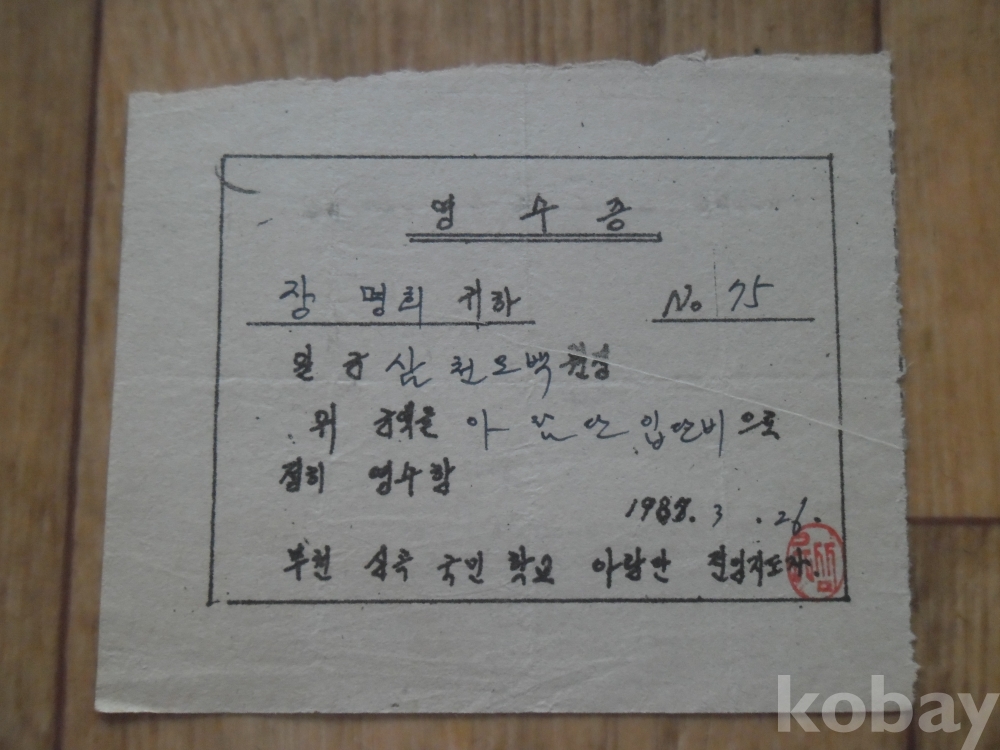 영 수 증
장 명희 귀하 No 75
원 금 삼천오백 원정
위 금액을 아람단 입단비 으로
정히 영수함
3 . 26.
부천 심곡 국민 학교 아람단 전임지도자.
kobay